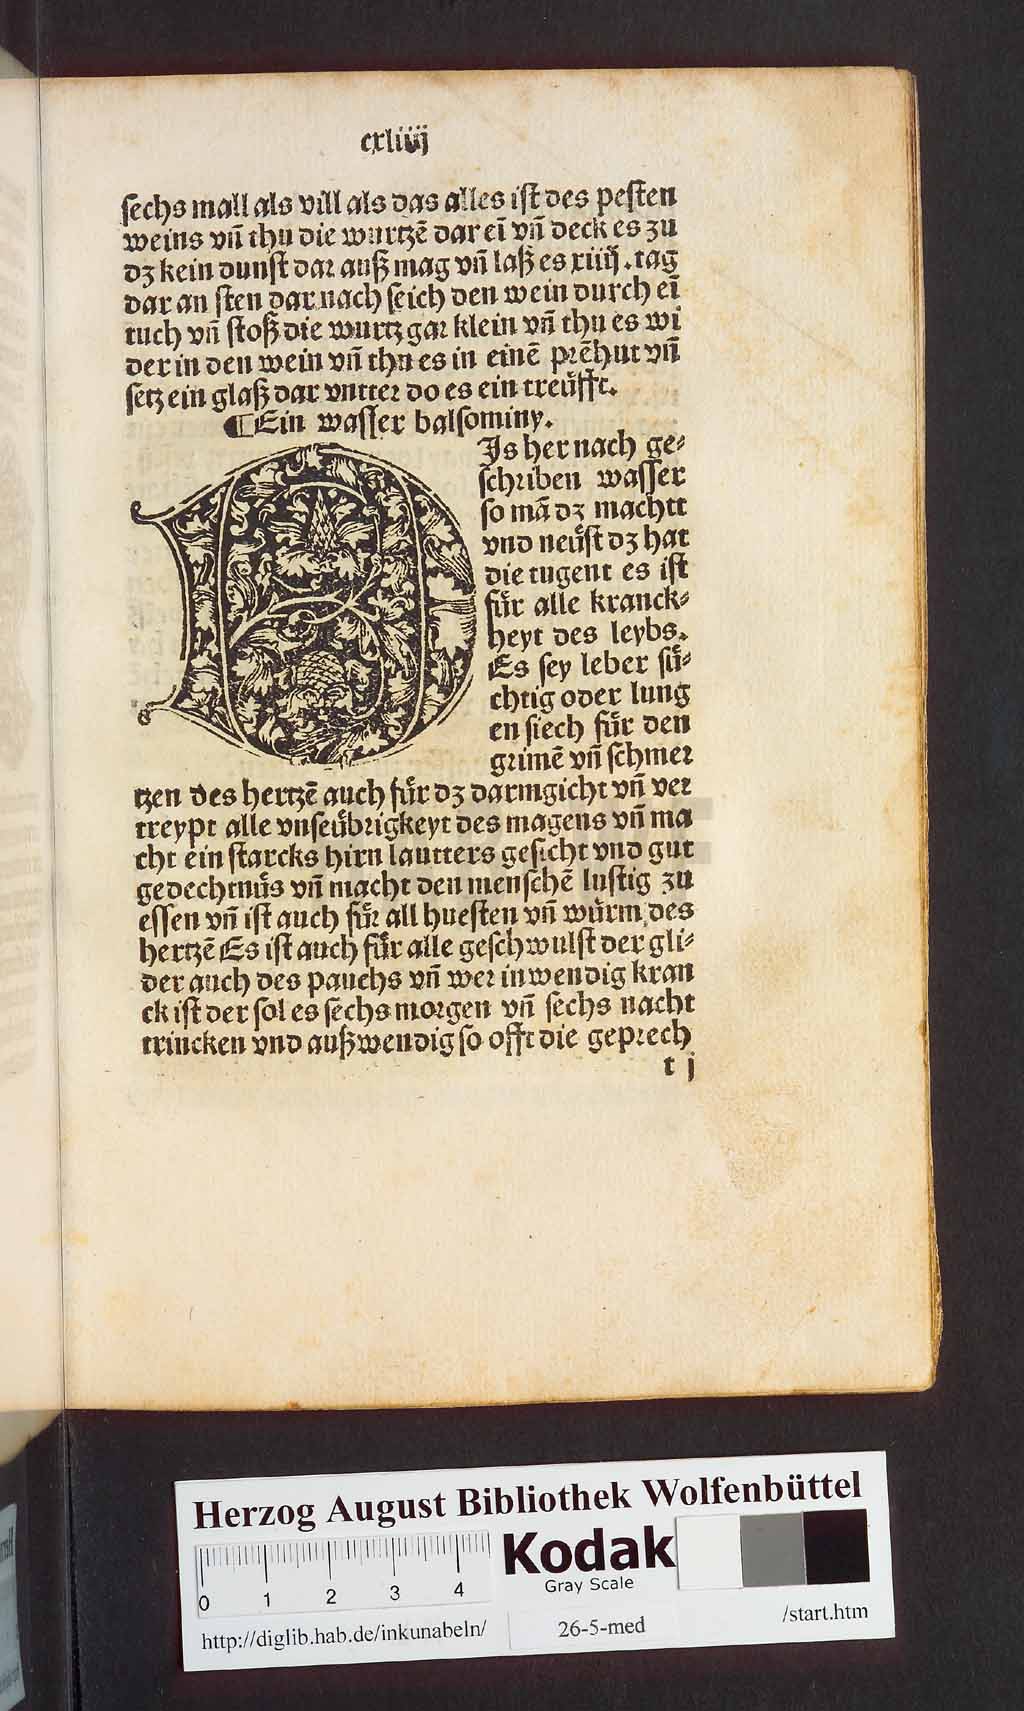 cxliiij
sechs mall als vill als das alles ist des pesten
weins vn̄ thu die wurtzē dar eī vn̄ deck es zu
dz kein dunst dar auß mag vn̄ laß es xiiij .tag
dar an sten dar nach seich den wein durch eī
tuch vn̄ stoß die wurtz gar klein vn̄ thu es wi
der in den wein vn̄ thu es in einē prēhut vn̄
setz ein glaß dar vntter do es ein treüfft.
¶Ein wasser balsominy.
DIs her nach ge⸗
schriben wasser
so mā dz machtt
vnd neüst dz hat
die tugent es ist
für alle kranck⸗
heyt des leybs.
Es sey leber sü⸗
chtig oder lung
en siech für den
grimē vn̄ schmer
tzen des hertzē auch für dz darmgicht vn̄ ver
treypt alle vnseübrigkeyt des magens vn̄ ma
cht ein starcks hirn lautters gesicht vnd gut
gedechtnüs vn̄ macht den menschē lustig zu
essen vn̄ ist auch für all huesten vn̄ würm des
hertzē Es ist auch für alle geschwulst der gli⸗
der auch des pauchs vn̄ wer inwendig kran
ck ist der sol es sechs morgen vn̄ sechs nacht
trincken vnd außwendig so offt die geprech
t j
Herzog August Bibliothek Wolfenbüttel
Kodak
Gray Scale
0 1 2 3 4
http://diglib.hab.de/inkunabeln/
26-5-med
/start.htm